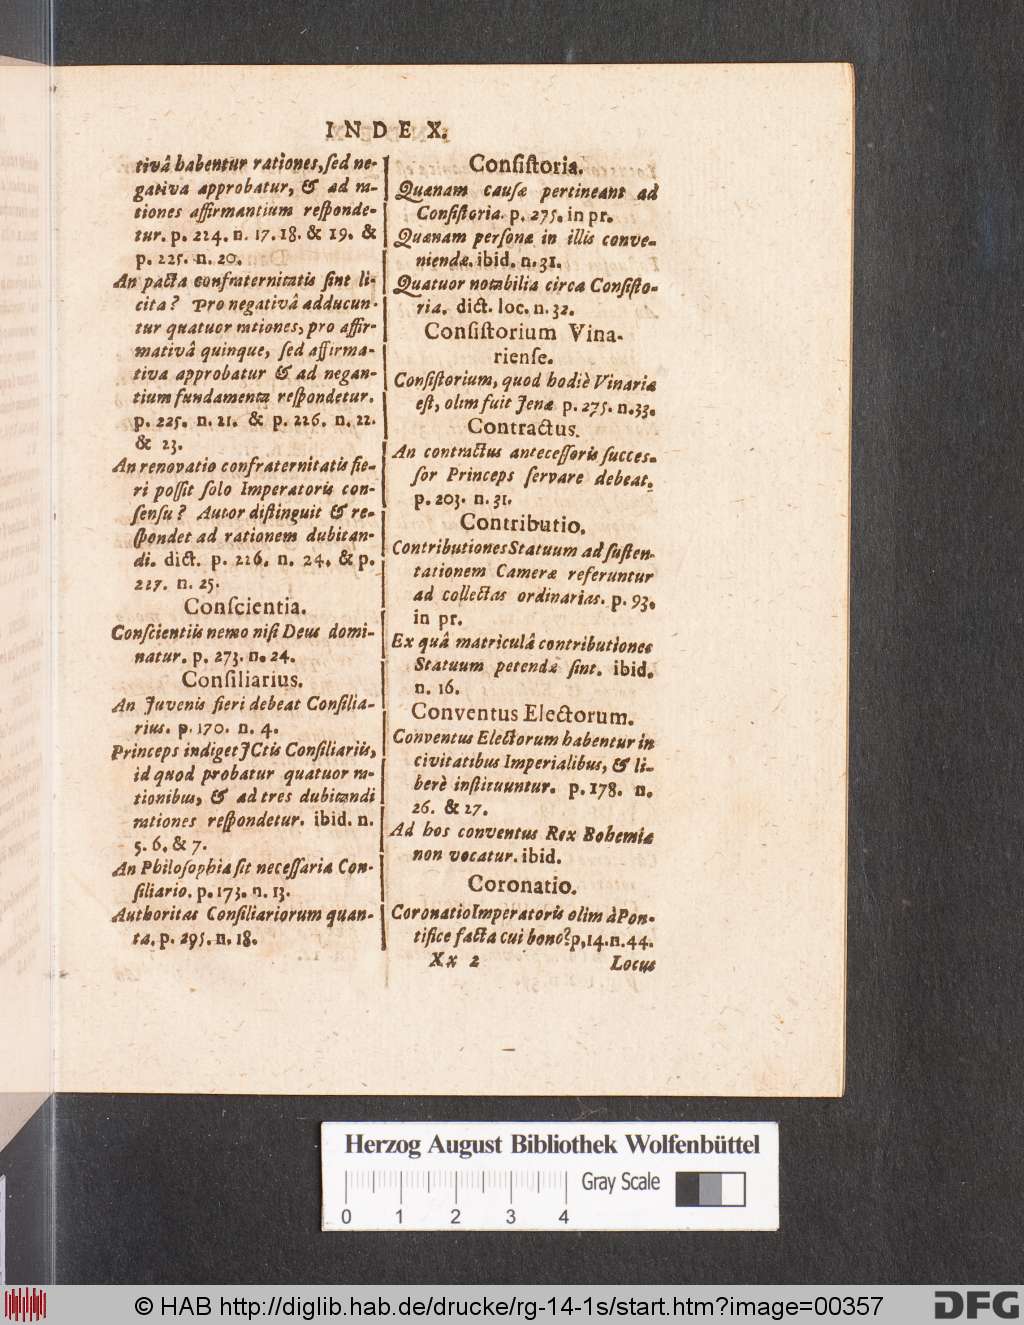 INDEX.
tivâ habentur rationes, ſed ne-
gativa approbatur, & ad ra-
tiones affirmantium reſponde-
tur. p. 224. n. 17. 18. & 19. &
p. 225. n. 20.
An pacta confraternitatis ſint li-
cita? Pro negativâ adducun-
tur quatuor rationes, pro affir-
mativâ quinque, ſed affirma-
tiva approbatur & ad negan-
tium fundamenta reſpondetur.
p. 225. n. 21. & p. 226. n. 22.
& 23.
An renovatio confraternitatis fie-
ri poſſit ſolo Imperatoris con-
ſenſu? Autor diſtinguit & re-
ſpondet ad rationem dubitan-
di. dict. p. 226. n. 24. & p.
227. n. 25.
Conſcientia.
Conſcientiis nemo niſi Deus domi-
natur. p. 273. n. 24.
Conſiliarius.
An Juvenis fieri debeat Conſilia-
rius. p. 170. n. 4.
Princeps indiget JCtis Conſiliariis,
id quod probatur quatuor ra-
tionibus, & ad tres dubitandi
rationes reſpondetur. ibid. n.
5. 6. & 7.
An Philoſophia ſit neceſſaria Con-
ſiliario. p. 173. n. 13.
Authoritas Conſiliariorum quan-
ta. p. 295. n. 18.
Conſiſtoria.
Quænam cauſæ pertineant ad
Conſiſtoria. p. 275. in pr.
Quænam perſonæ in illis conve-
niendæ. ibid. n. 31.
Quatuor notabilia circa Conſiſto-
ria. dict. loc. n. 32.
Conſiſtorium Vina-
rienſe.
Conſiſtorium, quod hodiè Vinariæ
eſt, olim fuit Jenæ p. 275. n. 33.
Contractus.
An contractus anteceſſoris ſucceſ-
ſor Princeps ſervare debeat.
p. 203. n. 31.
Contributio.
Contributiones Statuum ad ſuſten-
tationem Cameræ referuntur
ad collectas ordinarias. p. 93.
in pr.
Ex quâ matriculâ contributiones
Statuum petendæ ſint. ibid.
n. 16.
Conventus Electorum.
Conventus Electorum habentur in
civitatibus Imperialibus, & li-
berè inſtituuntur. p. 178. n.
26. & 27.
Ad hos conventus Rex Bohemiæ
non vocatur. ibid.
Coronatio.
Coronatio Imperatoris olim à Pon-
tifice facta cui bono? p, 14. n. 44.
Xx 2
Locus
Herzog August Bibliothek Wolfenbüttel
Gray Scale
0 1 2 3 4
© HAB http://diglib.hab.de/drucke/rg-14-1s/start.htm?image=00357
DFG